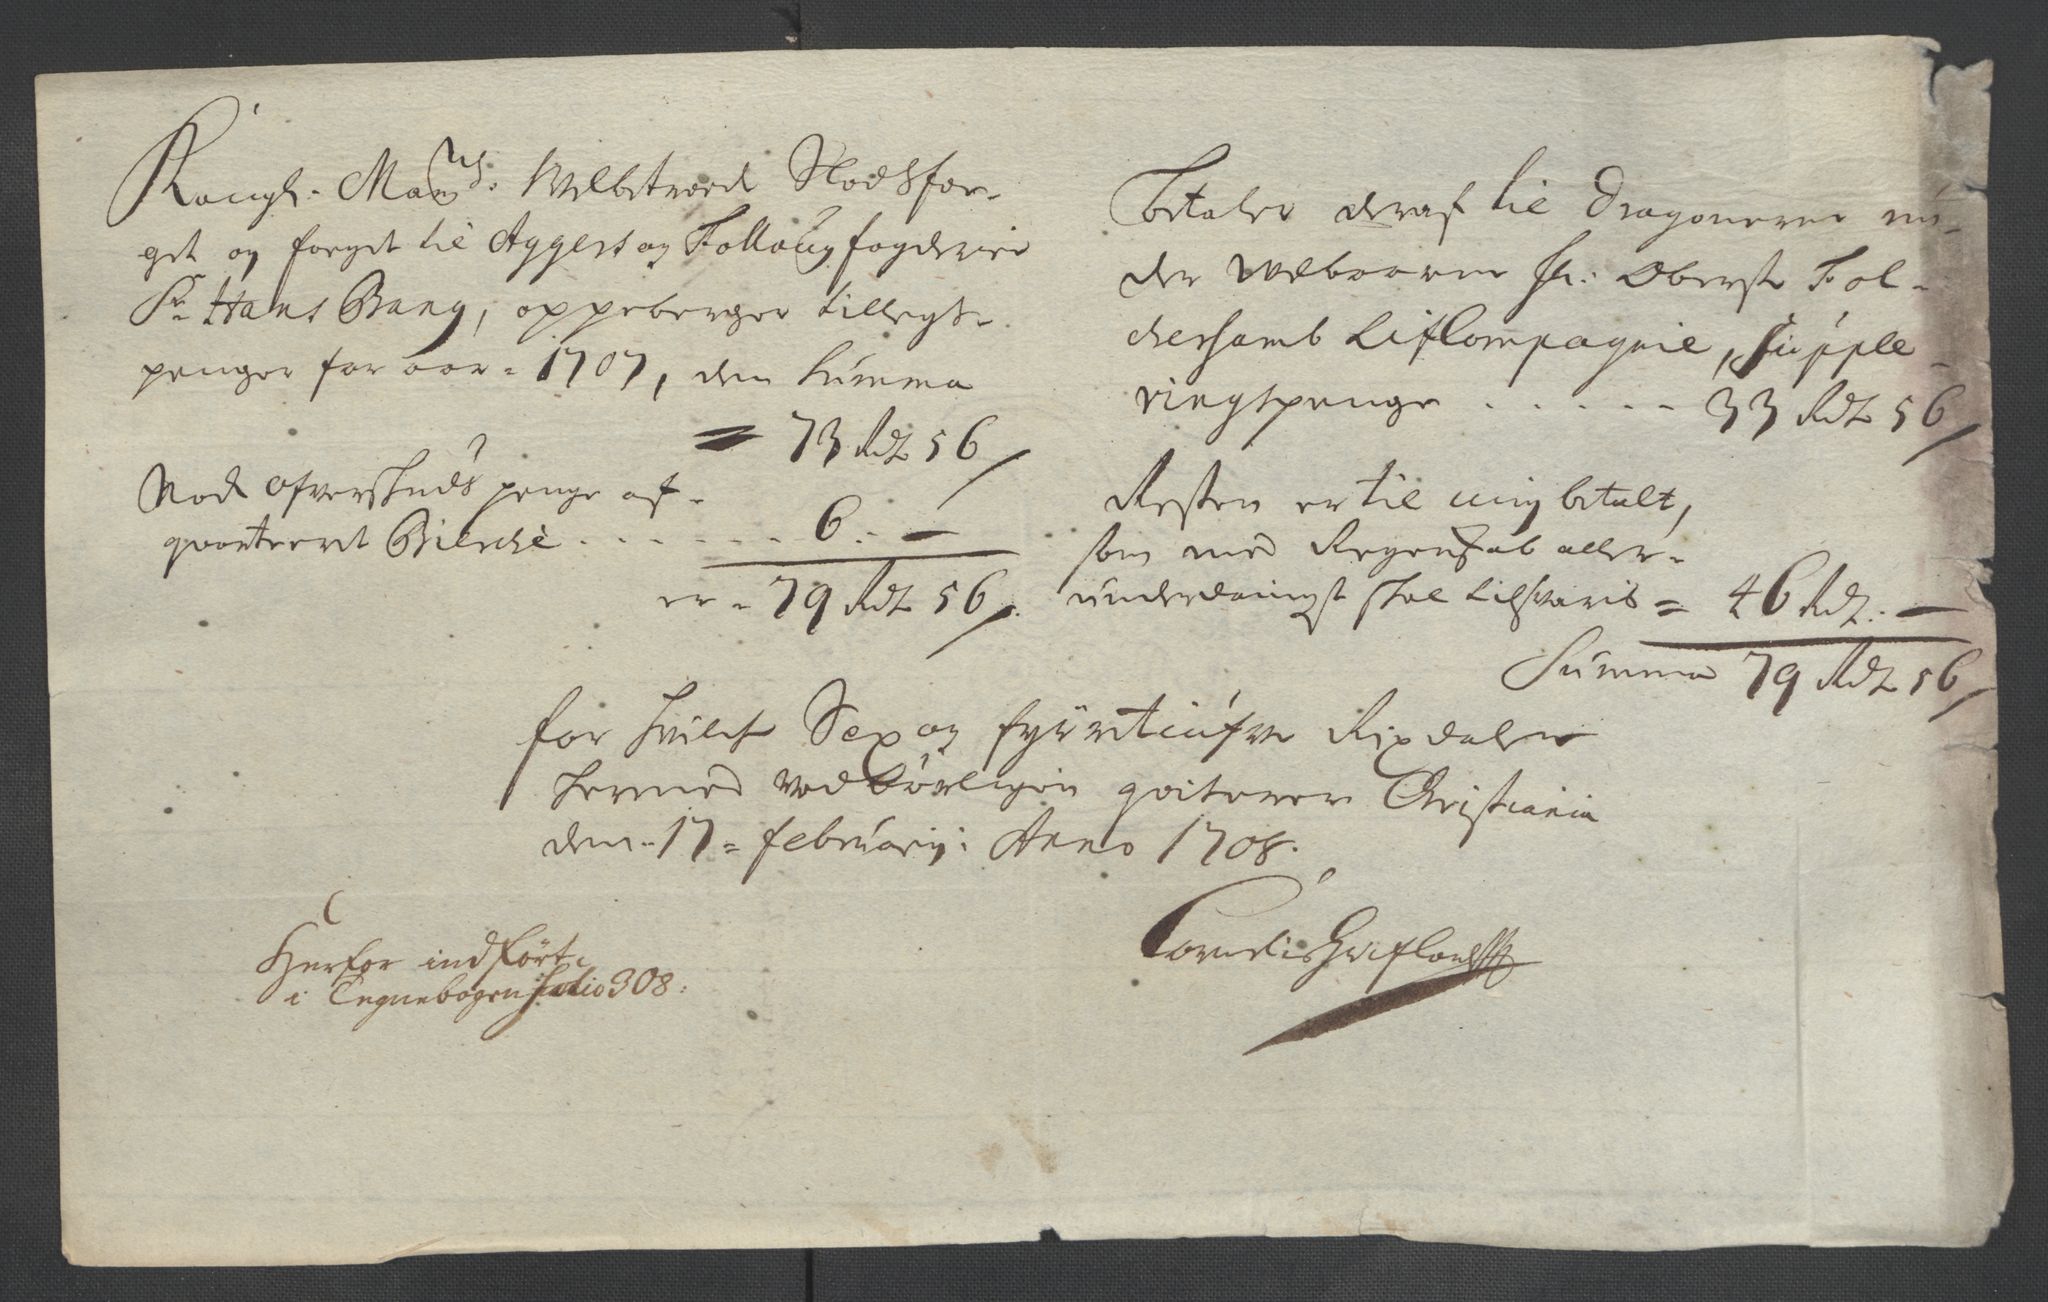 Kongl: Ma:ts Welbetroed Slodsfor-
get og foeget til Aggers og Follous fogderier
Sr Hans Bang, oppeberger tillegs-
penger for aar 1707, den Summa
= 73 Rdr 56/
Nock ofverskuds penge af
qvarteert ... 6 : —
er = 79 Rdr 56/.
Betaler deraf til Dragonerne un-
der Welbaarne hr: Oberste Fol-
chersamb LifCompagnie, Supple-
ringspenge . . . . . - 33 Rdr 56/
Resten er til mig betalt,
som med Regenskab aller-
underdanigst skal tilsvaris = 46 Rdr: —
Summa 79 Rdr 56/
for hvilche Sex og fyrretiufve Rixdaler
hermed vedbørligen qviterer Christiania
den 17 = februarij: Anno 1708.
Herfor indført
i Tegnebogen folio 308: